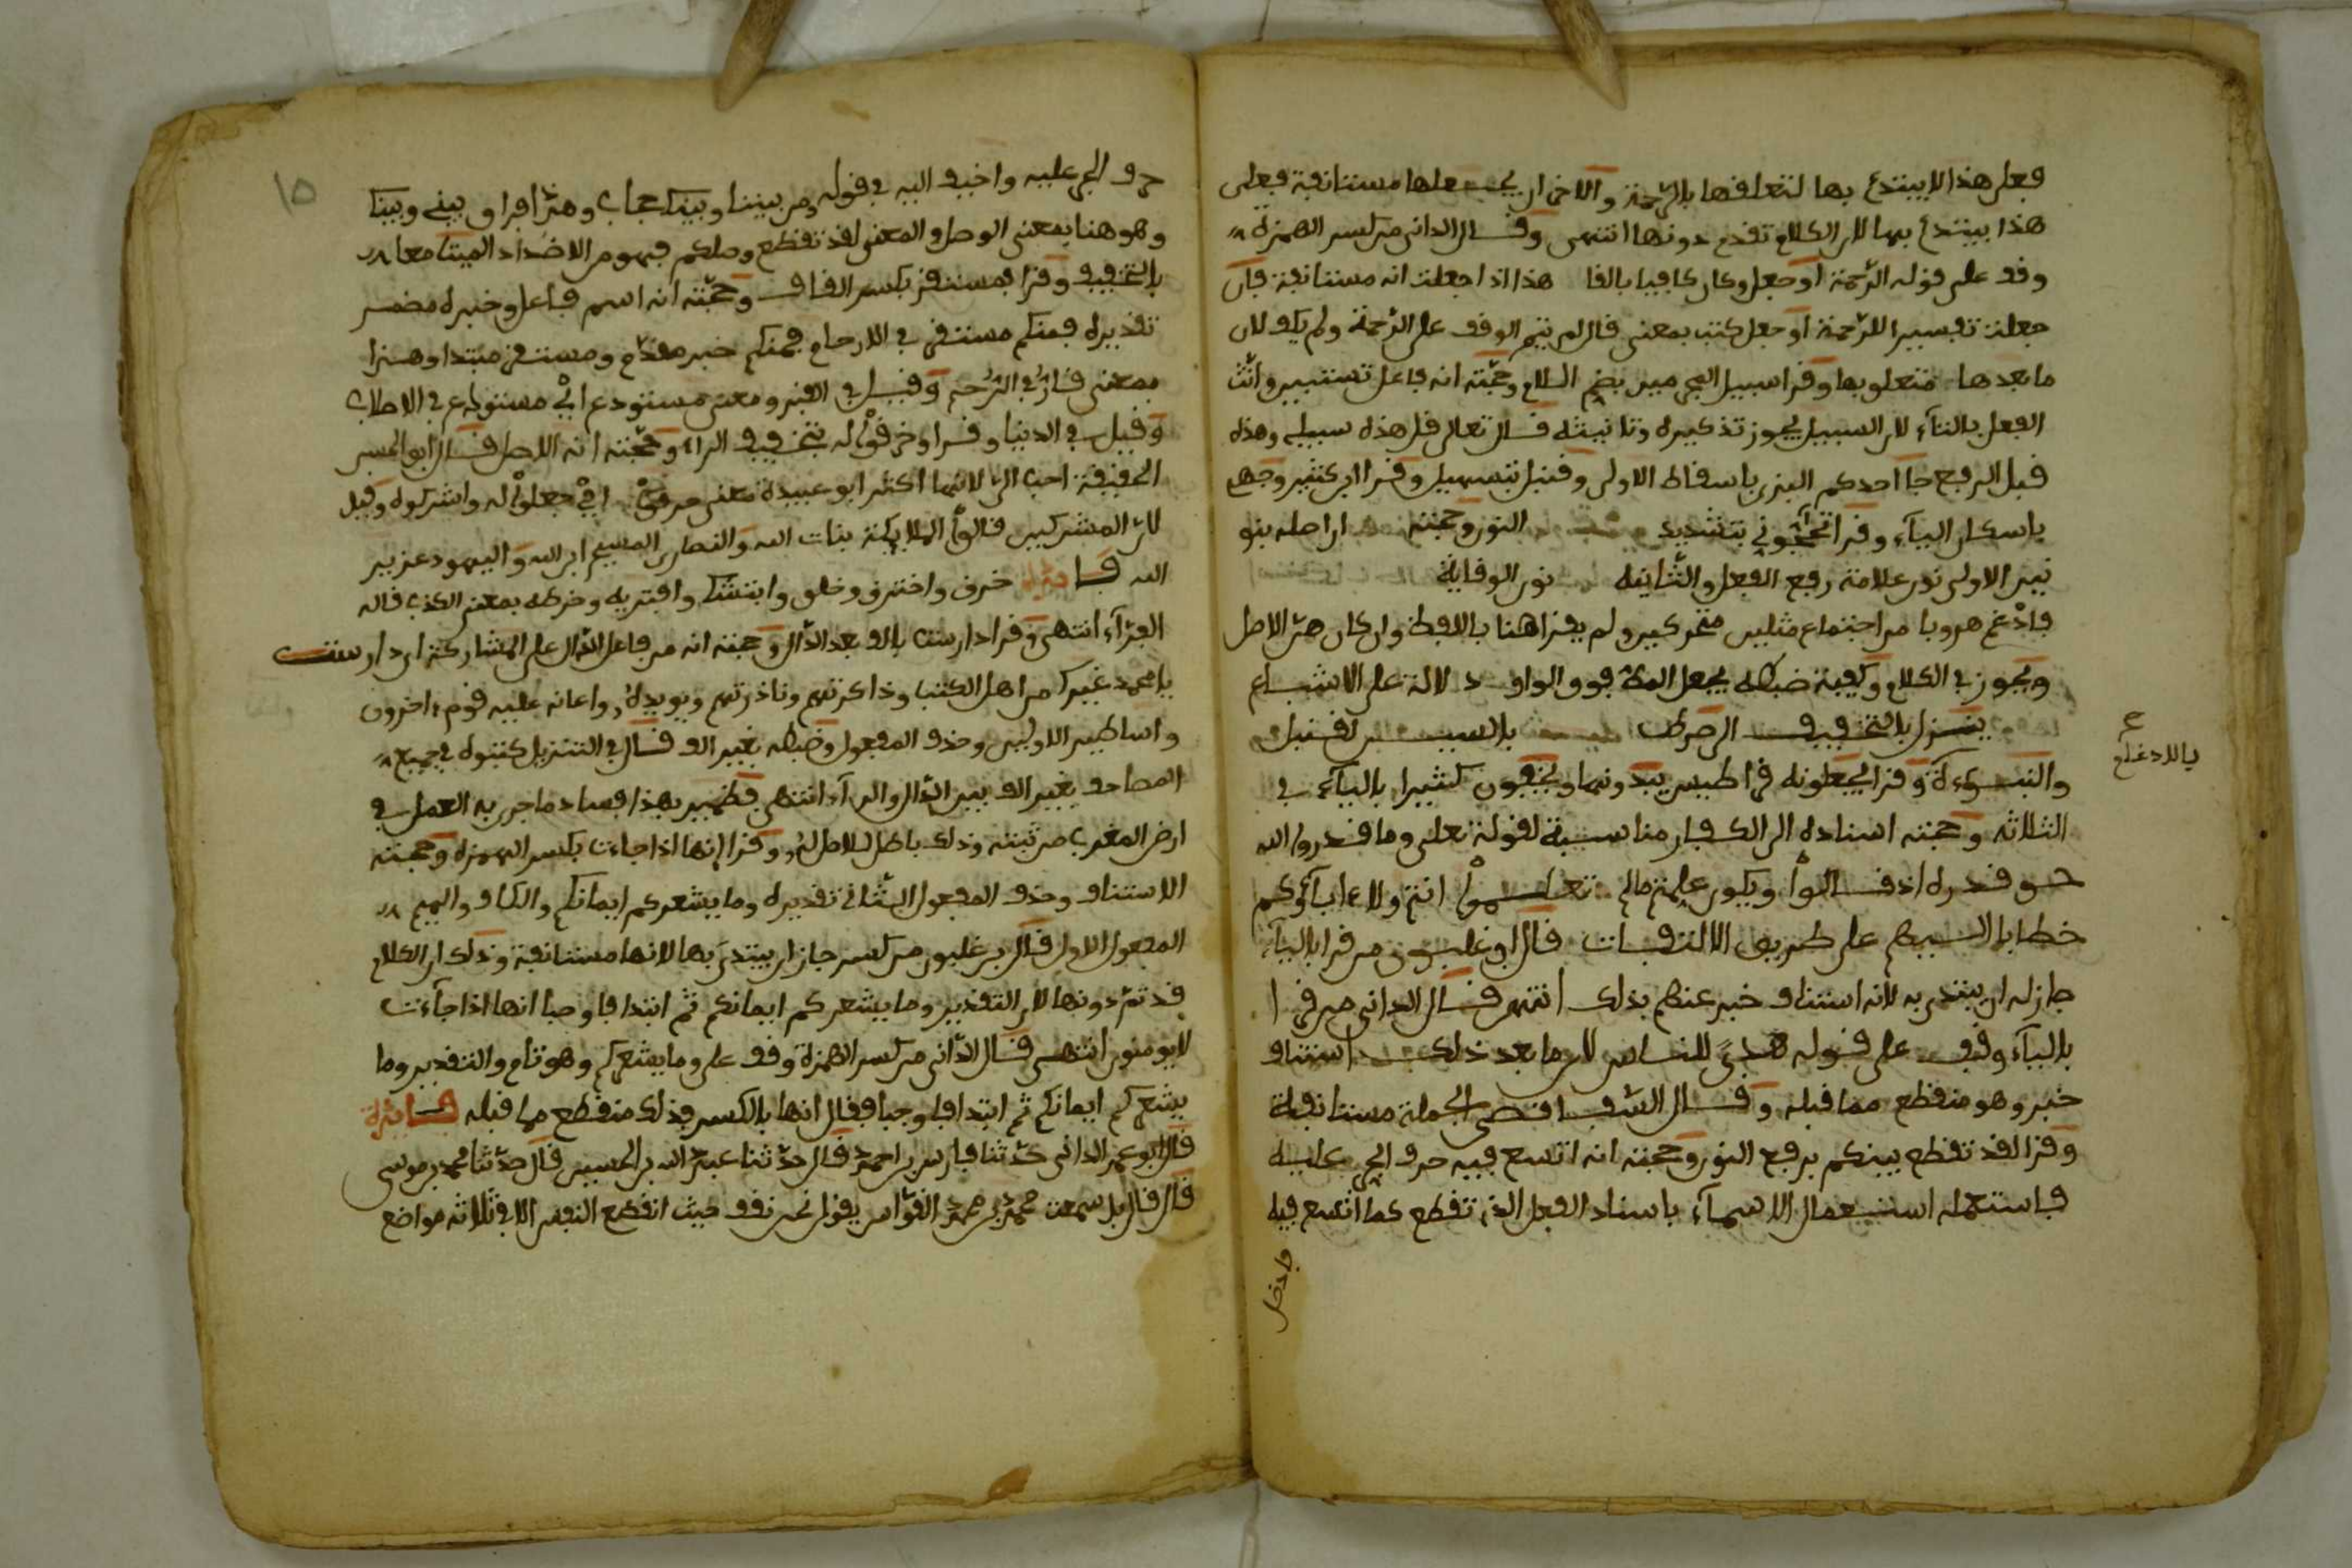 فعلى هذا لا يبتدئ بها لتعلقها بالرحمة والاخر ان يجعلها مستانفة فعلى
هذا يبتدئ بها لان الكلام تقدم دونها انتهى وقال الداني من كسر الهمزة
وقف على قوله الرحمة او جعل وكان كافيا بالغا هذا اذا جعلت انه مستانفة فان
جعلت تفسيرا للرحمة او جعل كتب بمعنى قال لم يتم الوقف على الرحمة ولم يكف لان
ما بعدها متعلق بها وقرا سبيل المجرمين بضم اللام وحجته انه فاعل تستبين وانّث
الفعل بالتاء لان السبيل يجوز تذكيره وتانيثه قال تعالى قل هذه سبيلي وهذه
قبل الرفع جا احدكم البزي باسقاط الاولى وقنبل بتسهيل وقرا ابن كثير وجهي
باسكان الياء وقرا اتحاجوني بتشديد النون وحجته ان اصله بنو
نين الاولى نون علامة رفع الفعل والثانية نون الوقاية
فادغم هروبا من اجتماع مثلين متحركين ولم يقرا هنا باللفظ وان كان هو الاصل
ويجوز في الكلام وكيفية ضبطه يجعل المط فوق الواو دلالة على الاشباع
ينزل بالتخفيف الصرط بالسين لقنبل
والنبوءة وقرا يجعلونه قراطيس يبدونها ويخفون كثيرا بالياء في
الثلاثة وحجته اسناده الى الكفار مناسبة لقوله تعلى وما قدروا الله
حق قدره اذ قالوا ويكون علمتم ما لم تعلموا انتم ولا ءاباؤكم
خطابا اليهم على طريق الالتفات قال ابن غلبون من قرا بالياء
جاز له ان يبتدئ به لانه استئناف خبر عنهم بذلك انتهى قال الداني من قرا
بالياء وقف على قوله هدى للناس لان ما بعد ذلك استئناف
خبر وهو منقطع مما قبله وقال السفاقصي الجملة مستانفة
وقرا لقد تقطع بينكم برفع النون وحجته انه اتسع فيه حرف الجر عليه
فاستعمله استعمال الاسماء باسناد الفعل الذي تقطع كما اتسع فيه
فادخل
بالادغام
١٥
حرف الجر عليه واضيف اليه في قوله ومن بيننا وبينك حجاب وهذا فراق بيني وبينك
وهو هنا بمعنى الوصل والمعنى لقد تقطع وصلكم فهو من الاضداد الميتا معا
بالتخفيف وقرا فمستقر بكسر القاف وحجته انه اسم فاعل وخبره مضمر
تقديره فمنكم مستقر في الارحام فمنكم خبر مقدم ومستقر مبتدا وهذا
بمعنى قارّ في الرحم وقيل في القبر ومعنى مستودع اي مستودع في الاصلاب
وقيل في الدنيا وقرا وخرقوا له بتخفيف الراء وحجته انه الاصل قال ابو الحسن
الخفيفة احب الي لانها اكثر ابو عبيدة معنى خرقوا اي جعلوا له واشركوه وقيل
لان المشركين قالوا الملايكة بنات الله والنصارى المسيح ابن الله واليهود عزير
الله فايدة خرق واخترق وخلق وابتشك وافتريه وخرصه بمعنى الكذب قاله
الفراء انتهى وقرا دارست بالف بعد الدال وحجته انه من فاعل الدال على المشاركة اي دارست
يا محمد غيرك من اهل الكتب وذاكرتهم وناذرتهم ويويده واعانه عليه قوم ءاخرون
واساطير الاولين وحذف المفعول وضبطه بغير الف قال في التنزيل كتبوه في جميع
المصاحف بغير الف بين الدال والراء انتهى فظهر بهذا فساد ما جرى به العمل في
ارض المغرب من ثبته وذلك باطل لا اصل له وقرا إنها اذا جاءت بكسر الهمزة وحجته
الاستئناف وحذف المفعول الثاني تقديره وما يشعركم ايمانكم والكاف والميم
المفعول الاول قال بن غلبون من كسر جاز ان يبتدئ بها لانها مستانفة وذلك ان الكلام
قد تم دونها لان التقدير وما يشعركم ايمانكم ثم ابتدا فاوجبا انها اذا جاءت
لا يومنون انتهى قال الداني من كسر الهمزة وقف على وما يشعركم وهو تام والتقدير وما
يشعركم ايمانكم ثم ابتدا فاوجبا فقال انها بالكسر فذلك منقطع مما قبله فايدة
قال ابو عمر الداني حدثنا فارس بن احمد قال حدثنا عبد الله بن الحسين قال حدثنا محمد بن موسى
قال قال بل سمعت محمد بن محمد القواس يقول نحن نقف حيث انقطع النفس الا في ثلاثة مواضع